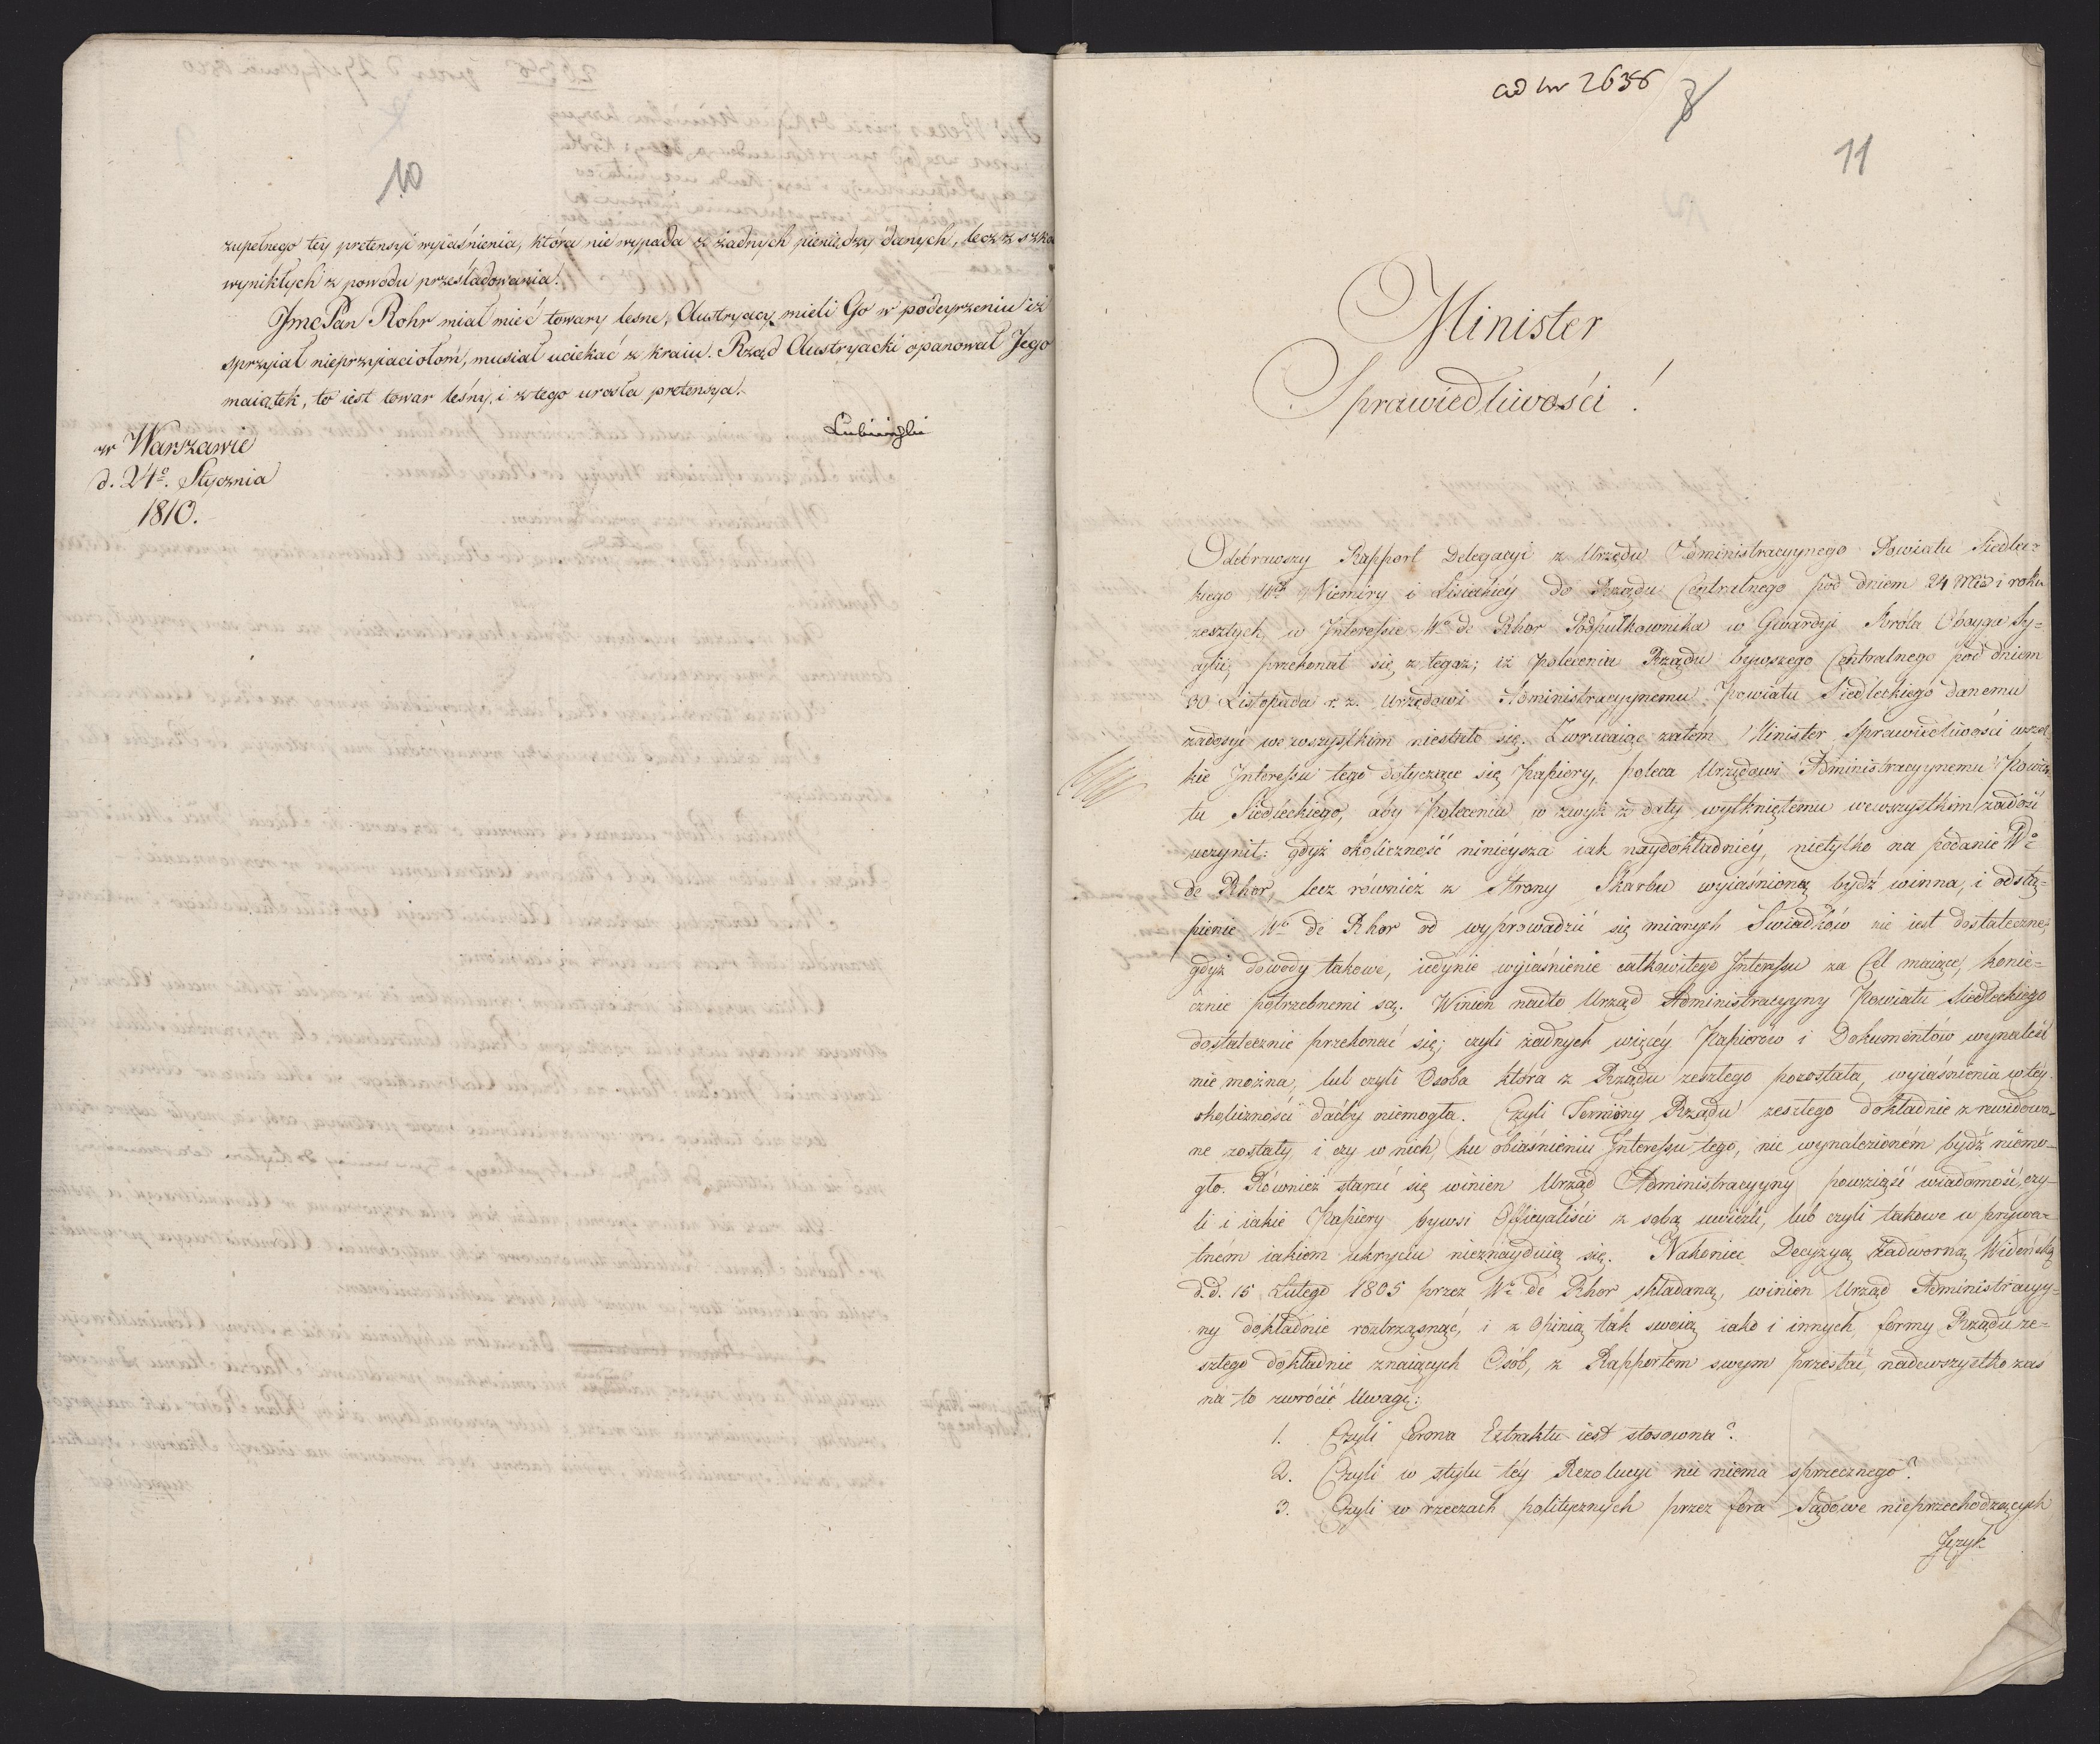 10
zupełnego tey pretensyi wyiaśnienia, która nie wypada z żadnych pieniędzy danych, lecz z szkód
wynikłych z powodu prześladowania.
JmcPan Rohr miał mieć towary lesne, Austryacy mieli Go w podeyrzeniu iż
sprzyiał nieprzyiaciołom, musiał uciekać z kraiu. Rząd Austryacki opanował Jego
maiątek, to iest towar leśny, i z tego urosła pretensya.
Lubieński
w Warszawie
d. 24º. Stycznia
1810.
ad Nr 2636
8
11
Minister
Sprawiedliwości!
Odebrawszy Rapport Delegacyi z Urzędu Administracyynego Powiatu Siedlec=
kiego Wch Niemiry i Lisieckiéy do Rządu Centralnego pod dniem 24 Mca i roku
zeszłych, w Interessie Wo de Rhor Podpułkownika w Gwardyi Króla Oboyga Sy=
cylii, przekonał się z tegoż; iż polecenia Rządu bywszego Centralnego pod dniem
30 Listopada r. z. Urzędowi Administracyynemu Powiatu Siedleckiego danemu
zadosyć we wszystkim niestało się. Zwracaiąc zatém Minister Sprawiedliwości wszel=
kie Interessu tego dotyczące się Papiery, poleca Urzędowi Administracyynemu Powia=
tu Siedleckiego, aby Polecenia w zwyż z daty wytkniętemu wewszystkim zadość
uczynił: gdyż okoliczność ninieysza iak naydokładniéy, nietylko na podanie Wo
de Rhor, lecz również z Strony Skarbu wyiaśnioną bydź winna, i odstą=
pienie Wo de Rhor od wyprowadzić się mianych Swiadków nie iest dostateczne;
gdyż dowody takowe, iedynie wyiaśnienie całkowitego Interessu za Cel maiące, konie=
cznie potrzebnemi są. Winien nadto Urząd Administracyyny Powiatu Siedleckiego
dostatecznie przekonać się; czyli żadnych więcéy Papierów i Dokumentów wynaleść
nie można, lub czyli Osoba która z Rządu zeszłego pozostała, wyiaśnienia w tey
okoliczności daćby niemogła. Czyli Terminy Rządu zeszłego dokładnie zrewidowa=
ne zostały, i czy w nich, ku obiaśnieniu Interessu tego, nic wynalezioném bydź niemo=
gło. Również starać się winien Urząd Administracyyny powziąść wiadomość, czy=
li i iakie Papiery bywsi Officyaliści z sobą uwieźli, lub czyli takowe w prywa=
tném iakiem ukryciu nieznayduią się. Nakoniec Decyzyą Nadworną Wideńską
d.d. 15 Lutego 1805 przez Wo de Rhor składaną, winien Urząd Administracyy=
ny dokładnie roztrząsnąć, i z Opinią tak swoią iako i innych, formy Rządu ze=
szłego dokładnie znaiących Osób, z Rapportem swym przesłać, nadewszystko zaś
na to zwrócić Uwagę:
1. Czyli forma Extraktu iest stosowna?
2. Czyli w stylu téy Rezolucyi nic niema sprzecznego?
3. Czyli w rzeczach politycznych przez fora Sądowe nieprzechodzących
Język